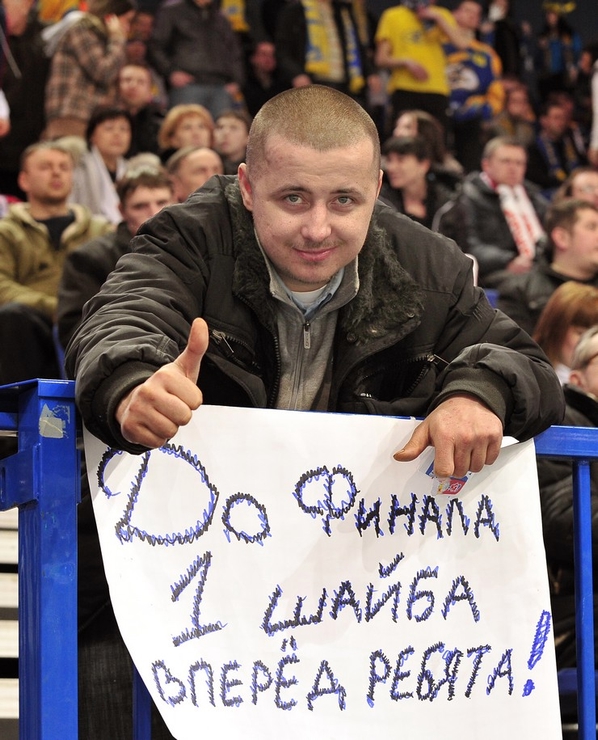 До Финала
1 шайба
вперёд ребята!